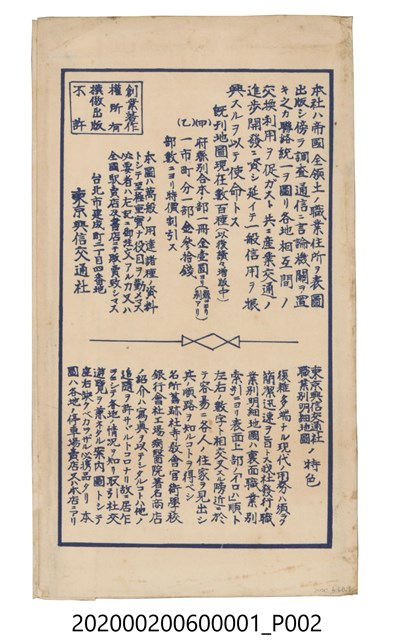 本社ハ帝國全領土ノ職業住所ヲ表圖
出版シ傍ラ調査通信言論機關ヲ置
キ之カ聯絡統一ヲ圖リ各地相互間ノ
交換利用ヲ促ガス
共ニ產業交通ノ
進歩開發ニ資シ延イテ一般信用ヲ根
興スルヲ以テ使命トス
既刊地圖現在數百種(以後續々增版中)
(甲)
府縣別合本部一冊金壹圓
(乙)
一市町分一部金參拾錢
部數ニヨリ特價割引ス
本圖ハ萬般ノ用達諸種ノ資料
トシテ至極重寶ナ役目ヲ勤メマス
全國驛賣店文書店ニテ販賣致シマス
台北市建成町二丁目四番地
東京興信交通社
創業著作
權所有
模倣出版
不許
東京興信交通社ノ
職業別明細地圖
特色
複雜多端ナル現代
簡潔迅速ヲ旨トス我社發行ノ職
業別明細地圖ハ裏面職業別
索引ニヨリ表面上部ノイロハ順ト
左右ノ數字ト相交叉スル附近ニ於
テ容易ニ各人ノ住家ヲ見出シ
共ノ順路ヲ知ルコトヲ得ベシ
名所舊跡社寺敎會官衙學校
銀行會社工場病醫院著名商店
ノ紹介ハ寫眞ヲ以テシタルコトハ他ノ
追隨ヲ許サザルトコロナリ故ニ居乍
ラニシテ各地ノ情況ヲ知リ取引社交
遊覽ヲ兼ネタル案内圖トシテ
座右缺クベカラザル必携品タリ
本
圖ハ各地ノ停車場賣店又ハ本店ニアリ
202000200600001_P002